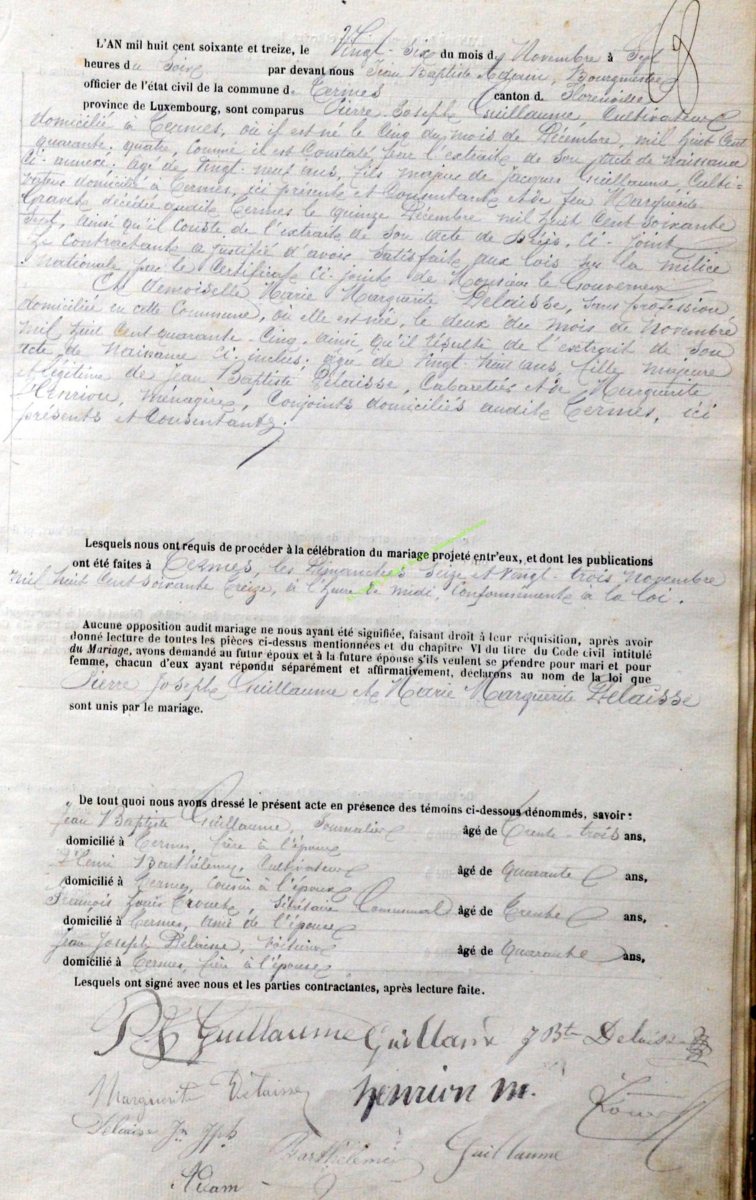 8
L'AN mil huit cent soixante et treize, le Vingt-Six du mois de Novembre à Sept
heures du Soir par devant nous Jean Baptiste Adam, Bourgmestre
officier de l'état civil de la commune de Termes canton d. Florenville
province de Luxembourg, sont comparus Pierre Joseph Guillaume, Cultivateur
domicilié à Termes, où il est né le Cinq du mois de Décembre, mil huit Cent
quarante-quatre, comme il est Constaté par l'extrait de son Acte de Naissance
Ci-annexé. âgé de vingt-neuf ans, fils majeur de Jacques Guillaume, Culti-
vateur domicilié à Termes, ici présent et Consentant et de feu Marguerite
Gravet décédée audit Termes le quinze Décembre mil huit Cent Soixante
Sept, ainsi qu'il conste de l'extrait de son acte de décès, Ci-joint
Le Contractant a justifié d'avoir satisfait aux lois sur la milice
Nationale par le Certificat Ci-joint de Monsieur le Gouverneur
Et Demoiselle Marie Marguerite Delaisse, sans profession,
domiciliée en cette Commune, où elle est née, le deux du mois de Novembre
mil huit Cent quarante-Cinq, ainsi qu'il résulte de l'extrait de son
acte de Naissance Ci-inclus; âgée de vingt-huit ans, fille majeure
et légitime de Jean Baptiste Delaisse, Cabaretier et de Marguerite
Henrion, ménagère, Conjoints domiciliés audit Termes, ici
présents et Consentants.
Lesquels nous ont requis de procéder à la célébration du mariage projeté entr'eux, et dont les publications
ont été faites à Termes, les Dimanches Seize et Vingt-trois Novembre
mil huit Cent Soixante Treize, à l'heure de midi, Conformément à la loi.
Aucune opposition audit mariage ne nous ayant été signifiée, faisant droit à leur réquisition, après avoir
donné lecture de toutes les pièces ci-dessus mentionnées et du chapitre VI du titre du Code civil intitulé
du Mariage, avons demandé au futur époux et à la future épouse s'ils veulent se prendre pour mari et pour
femme, chacun d'eux ayant répondu séparément et affirmativement, déclarons au nom de la loi que
Pierre Joseph Guillaume et Marie Marguerite Delaisse
sont unis par le mariage.
De tout quoi nous avons dressé le présent acte en présence des témoins ci-dessous dénommés, savoir:
Jean Baptiste Guillaume, Journalier âgé de Trente-trois ans,
domicilié à Termes, frère à l'époux
Henri Barthélemy, Cultivateur âgé de Quarante ans,
domicilié à Termes, Cousin à l'époux
François Louis, Secrétaire Communal âgé de Trente ans,
domicilié à Termes, ami de l'épouse
Jean Joseph Delaisse, Voiturier âgé de Quarante ans,
domicilié à Termes, frère à l'épouse
Lesquels ont signé avec nous et les parties contractantes, après lecture faite.
PJ Guillaume Guillaume J Bte Delaisse
Marguerite Delaisse henrion m.
Delaisse Jn Jph Barthélemi Guillaume
Adam